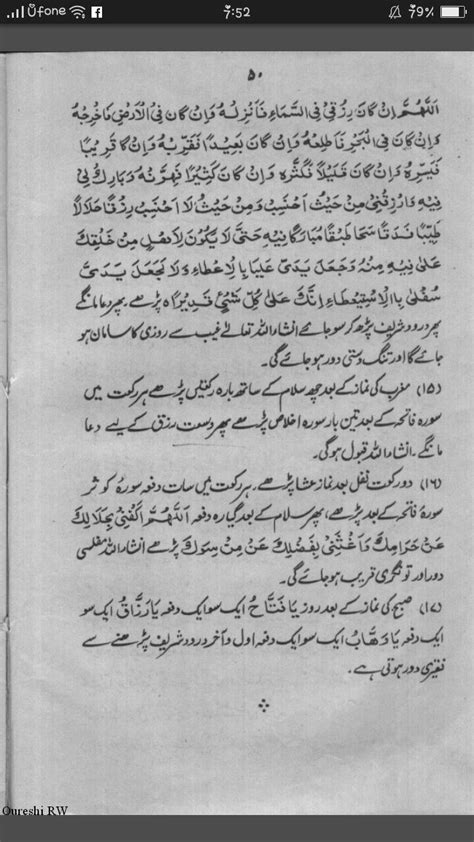 Ufone 7:52 79%
۵۰
اَللّٰهُمَّ اِنْ كَانَ رِزْقِىْ فِى السَّمَاءِ نَاَنْزِلْهُ وَاِنْ كَانَ فِى الْاَرْضِ فَاخْرِجْهُ
وَاِنْ كَانَ فِى الْبَحْرِ نَاطْلِعْهُ وَاِنْ كَانَ بَعِيْدًا نَقَرِّبْهُ وَاِنْ كَا قَرِيْبًا
نَيَسِّرْهُ وَاِنْ كَانَ قَلِيْلاً نَكَثِّرْهُ وَاِنْ كَانَ كَثِيْرًا نَهَوِّنْهُ وَبَارِكْ لِىْ
نِيْهِ وَارْزُقْنِىْ مِنْ حَيْثُ اَحْتَسِبُ وَمِنْ حَيْثُ لَا اَحْتَسِبُ رِزْقًا حَلَالاً
طَيِّبًا سَحًّا طَبَقًا مُبَارَكًا نِيْهِ حَتّٰى لَا يَكُوْنَ لِاَهْلٍ مِنْ خَلْقِكَ
عَلٰى نِيْهِ مِنْهُ وَجَعَلْ يَدَىَّ عَلْيَا بِالْاِعْطَاءِ وَلَا تَجْعَلْ يَدَىَّ
سُفْلٰى بِالْاِسْتِيْعْطَاءِ اِنَّكَ عَلٰى كُلِّ شَىْءٍ قَدِيْرٌ اہ پڑھے۔ پھر دعا مانگے
پھر درود شریف پڑھ کر سو جائے انشاء اللہ تعالےٰ غیب سے روزی کا سامان ہو
جائے گا اور تنگ دستی دور ہو جائے گی۔
(۱۵) مغرب کی نماز کے بعد چھ سلام کے ساتھ بارہ رکعتیں پڑھے ہر رکعت میں
سورہ فاتحہ کے بعد تین بار سورہ اخلاص پڑھے پھر وسعت رزق کے لیے دعا
مانگے۔ انشاء اللہ قبول ہوگی۔
(۱۶) دو رکعت نفل بعد نماز عشا پڑھے۔ ہر رکعت میں سات دفعہ سورۂ کوثر
سورۂ فاتحہ کے بعد پڑھے، پھر سلام کے بعد گیارہ دفعہ اَللّٰهُمَّ اكْفِنِىْ بِحَلَالِكَ
عَنْ حَرَامِكَ وَاَغْنِنِىْ بِفَضْلِكَ عَنْ مِنْ سِوَكَ پڑھے انشاء اللہ مفلسی
دور اور تونگری قریب ہو جائے گی۔
(۱۷) صبح کی نماز کے بعد روز يَا فَتَّاحُ ایک سو ایک دفعہ يَا رَزَّاقُ ایک سو
ایک دفعہ يَا وَهَّابُ ایک سو ایک دفعہ اول و آخر درود شریف پڑھنے سے
فقیری دور ہوتی ہے۔
Qureshi RW